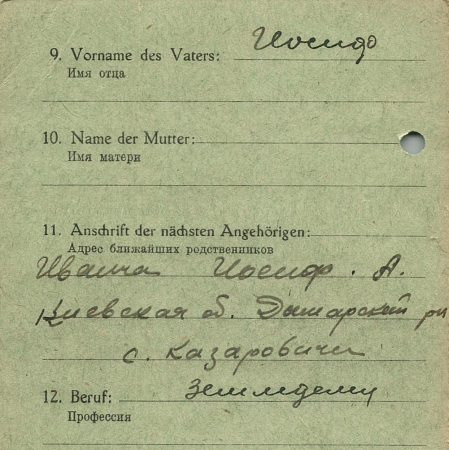 9. Vorname des Vaters: Иосиф
Имя отца
10. Name der Mutter:
Имя матери
11. Anschrift der nächsten Angehörigen:
Адрес ближайших родственников
Иванча Иосиф. А.
Киевская об. Дымарский рн
с. Казаровичи
12. Beruf:
Профессия